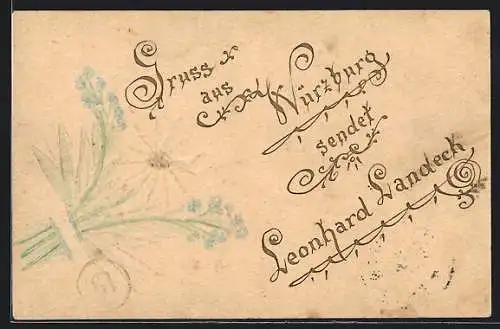 Gruss
aus
Würzburg
sendet
Leonhard Landeck